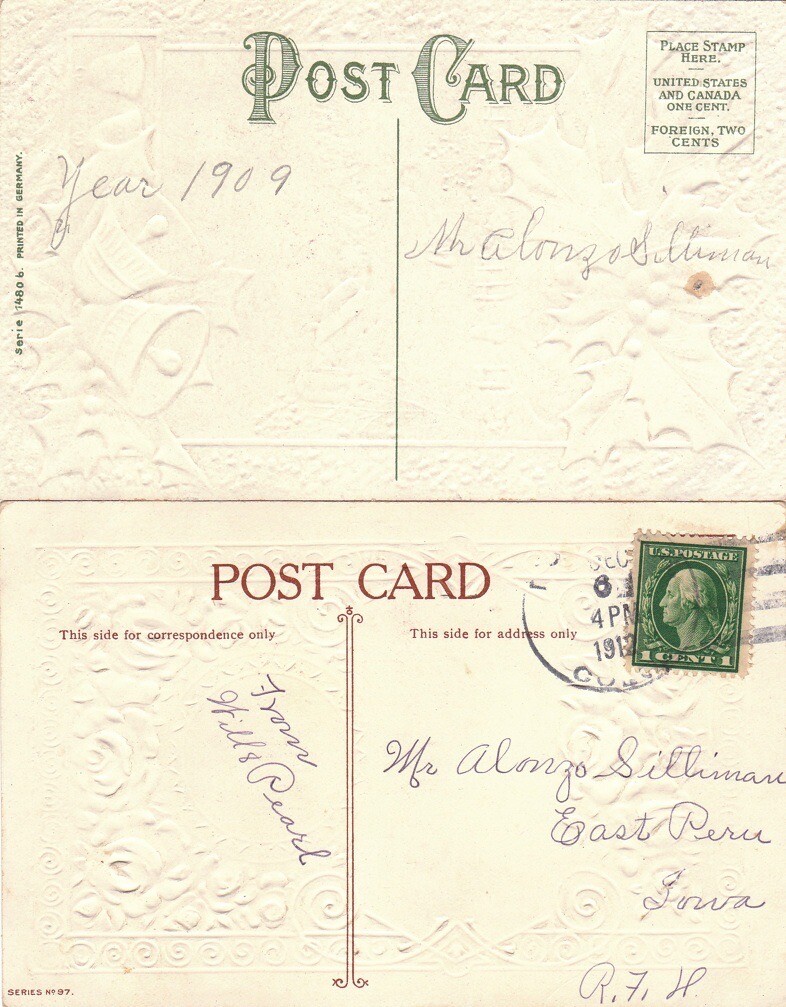 POST CARD
PLACE STAMP
HERE.
UNITED STATES
AND CANADA
ONE CENT.
FOREIGN, TWO
CENTS
Serie 1480 b. PRINTED IN GERMANY.
Year 1909
Mr Alonzo Silliman
POST CARD
This side for correspondence only
This side for address only
DEC
6
4 PM
1912
U.S. POSTAGE
1 CENT 1
From
Will & Pearl
Mr Alonzo Silliman
East Peru
Iowa
R. F. D.
SERIES No 97.